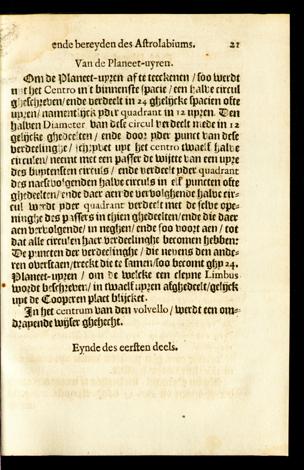 ende bereyden des Astrolabiums. 21
Van de Planeet-uyren.
Om de Planeet-uyren af te teeckenen / soo werdt
uyt het Centro in't binnenste spacie / een halve circul
gheschreven / ende verdeelt in 24 ghelijcke spacien ofte
uyren / namentlijck yder quadrant in 12 uyren. Den
halven Diameter van dese circul verdeelt mede in 12
gelijcke ghedeelten / ende door yder punct van dese
verdeelinghe / schrijvet uyt het centro twaelf halve
circulen / neemt met een passer de wijtte van een uyre
des buytensten circuls / ende verdeelt yder quadrant
des naestvolgenden halve circuls in elf puncten ofte
ghedeelten / ende daer aen de vervolghende halve cir-
cul werde yder quadrant verdeelt met de selve ope-
ninghe des passers in thien ghedeelten / ende die daer
aen vervolgende / in neghen / ende soo voort aen / tot
dat alle circulen haer verdeelinghe becomen hebben:
De puncten der verdeelinghe / die nevens den ande-
ren overstaen / treckt die te samen / soo becomt ghy 24.
Planeet-uyren / om de welcke een cleyne Limbus
worde beschreven / in twaelf uyren afghedeelt / gelijck
uyt de Cooperen plaet blijcket.
In het centrum van den volvello / werdt een om-
drayende wijser ghehecht.
Eynde des eersten deels.